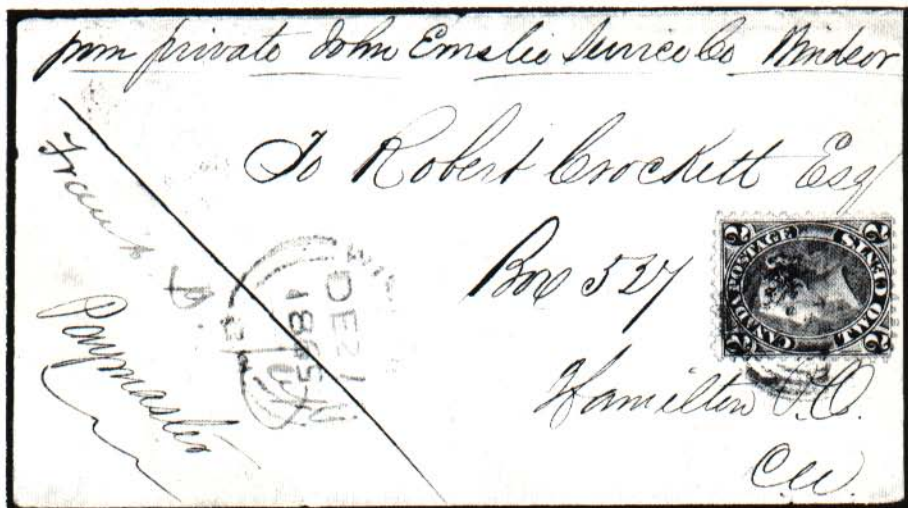 private John Emslie Service Co Windsor
To Robert Crockett Esq
Box 527
Hamilton P.O.
C.W.
Paymaster
DE 21
1865
CANADA POSTAGE
TWO CENTS
2 2 2 2